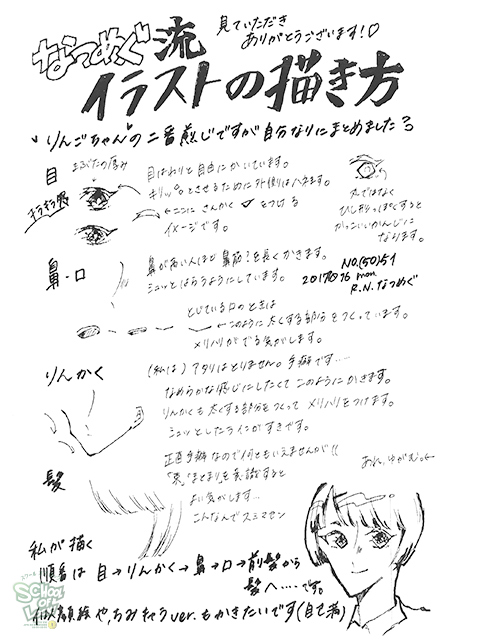 なつめぐ流
見ていただき
ありがとうございます!
イラストの描き方
"りんごちゃん"の二番煎じですが自分なりにまとめました
目
まぶたの厚み
キラキラ
目はわりと自由にかいています。
キリッとさせるために外側はハネます。
←ここに さんかく をつける
イメージです。
丸ではなく
ひし形っぽくすると
かっこいいかんじに
なります。
鼻・口
鼻が高い人ほど 鼻筋?を長くかきます。
ミュッとはらうようにしています。
NO.(50)51
2017 16 mon
R.N.なつめぐ
とじている口のときは
←このように太くする部分をつくっています。
メリハリがでる気がします。
りんかく
(私は)アタリはとりません。手癖です…
なめらかな感じにしたくてこのようにかきます。
りんかくも太くする部分をつくって メリハリをつけます。
ミュッとしたラインがすきです。
髪
正直手癖なので何ともいえませんが!!
「束」「まとまり」を意識すると
よい気がします…
こんなんでスミマセン
あれ、ゆがむ。
私が描く
順番は 目→りんかく→鼻→口→前髪から
髪へ……です。
似顔絵や、ちみきゃらver.もかきたいです(自己満)
SCHOOL OF LOCK!